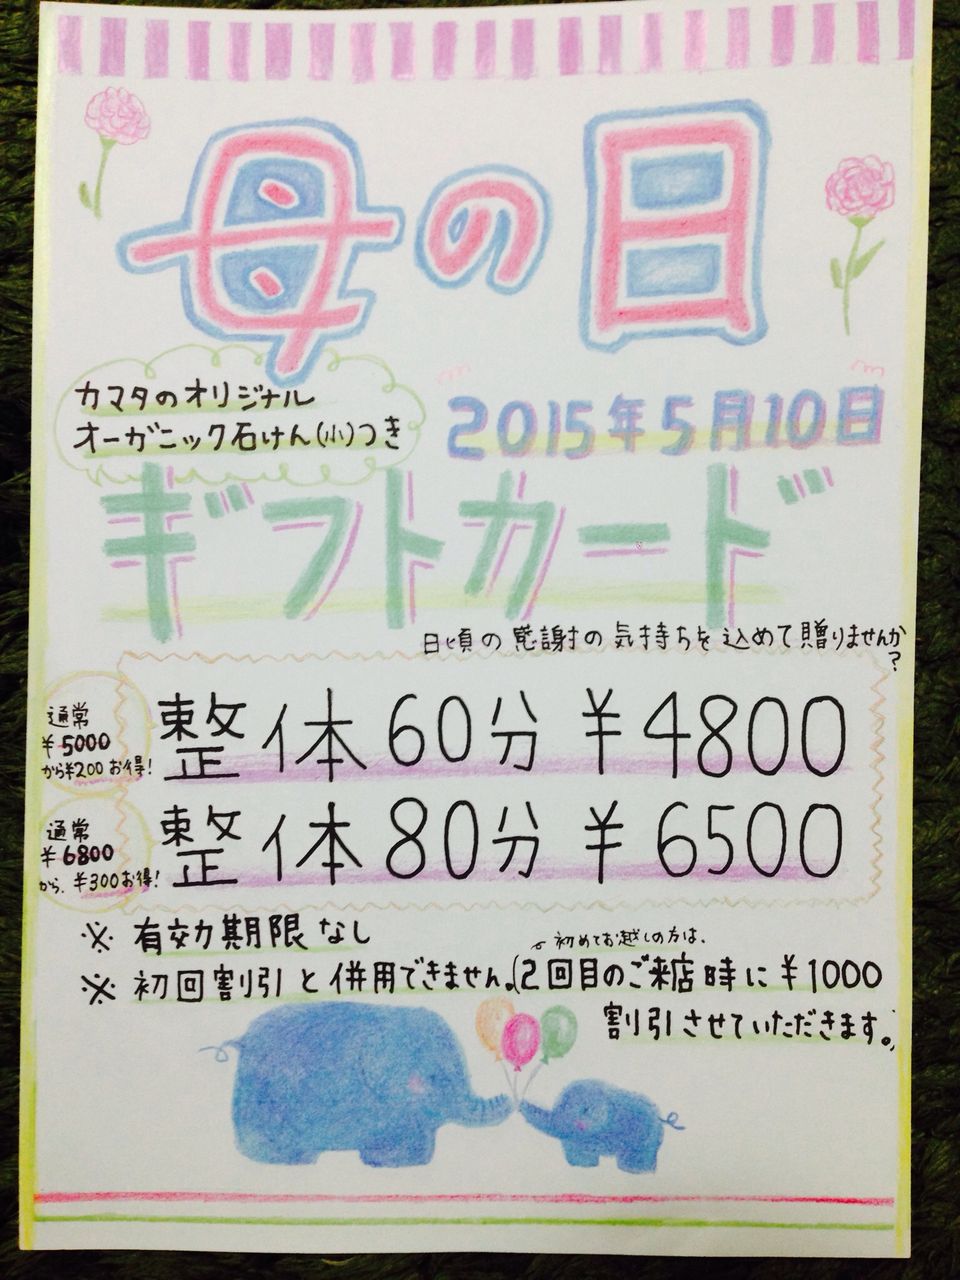 母の日
カマタのオリジナル
オーガニック石けん(小)つき
2015年5月10日
ギフトカード
日頃の感謝の気持ちを込めて贈りませんか?
通常
¥5000
から¥200お得!
整体60分 ¥4800
通常
¥6800
から、¥300お得!
整体80分 ¥6500
※ 有効期限なし
初めてお越しの方は、
※ 初回割引と併用できません。(2回目のご来店時に¥1000
割引させていただきます。)